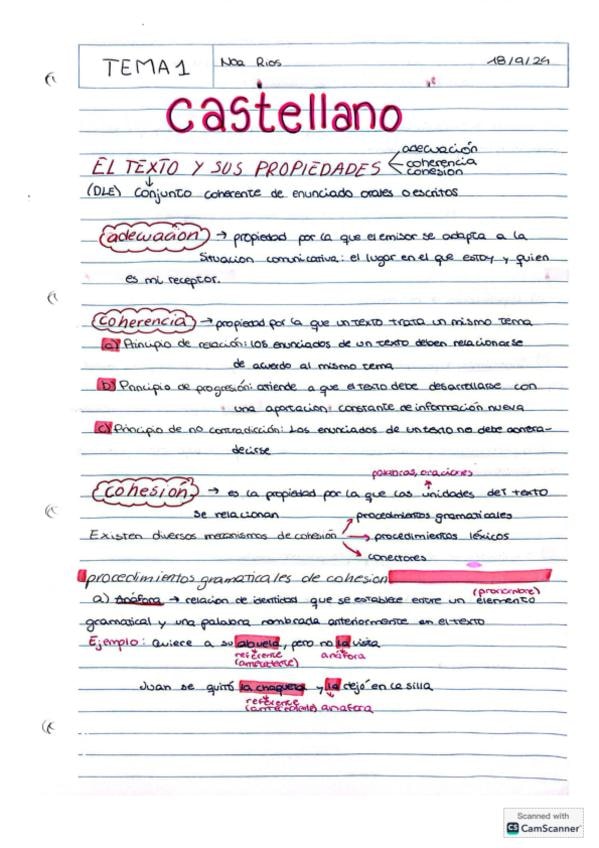 TEMA 1
Noa Rios
18/9/24
Castellano
EL TEXTO Y SUS PROPIEDADES
adecuación
coherencia
cohesión
(DLE) conjunto coherente de enunciado orales o escritos
adecuación → propiedad por la que el emisor se adapta a la
situación comunicativa: el lugar en el que estoy y quien
es mi receptor.
Coherencia → propiedad por la que un texto trata un mismo tema
a) Principio de relación: Los enunciados de un texto deben relacionarse
de acuerdo al mismo tema
b) Principio de progresión: atiende a que el texto debe desarrollarse con
una aportación constante de información nueva
c) Principio de no contradicción: Los enunciados de un texto no debe contra-
decirse
palabras, oraciones
cohesión → es la propiedad por la que las unidades del texto
se relacionan
Existen diversos mecanismos de cohesión
→ procedimientos gramaticales
→ procedimientos léxicos
→ conectores
procedimientos gramaticales de cohesion
(pronombre)
a) Anáfora → relacion de identidad que se establece entre un elemento
gramatical y una palabra nombrada anteriormente en el texto
Ejemplo: Quiere a su abuela, pero no la visita
referente anáfora
(antecedente)
Juan se quitó la chaqueta y la dejó en la silla
referente
(antecedente) anáfora
Scanned with
CS CamScanner